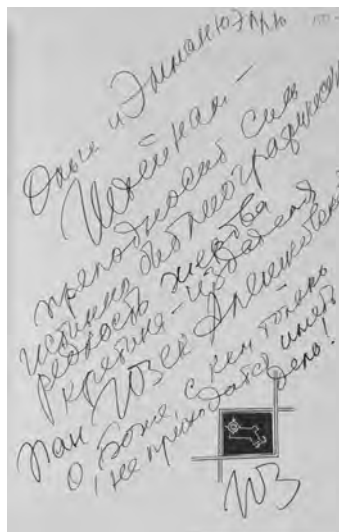 Ольге и Эммануэлю
Штейнам —
преподносит сию
истинно библиографическую
редкость жертва
кретина-издателя
пан Юзек Алешковский
О Боже, с кем только
не приходится иметь
дело!
Юз